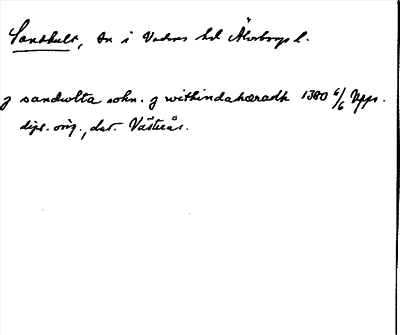 Sandhult, sn i Vedens hd Älvsborgs l.
j sandwlta sokn. j withindahæradh 1380 6/6 Upps.
dipl. orig., dat. Västerås.